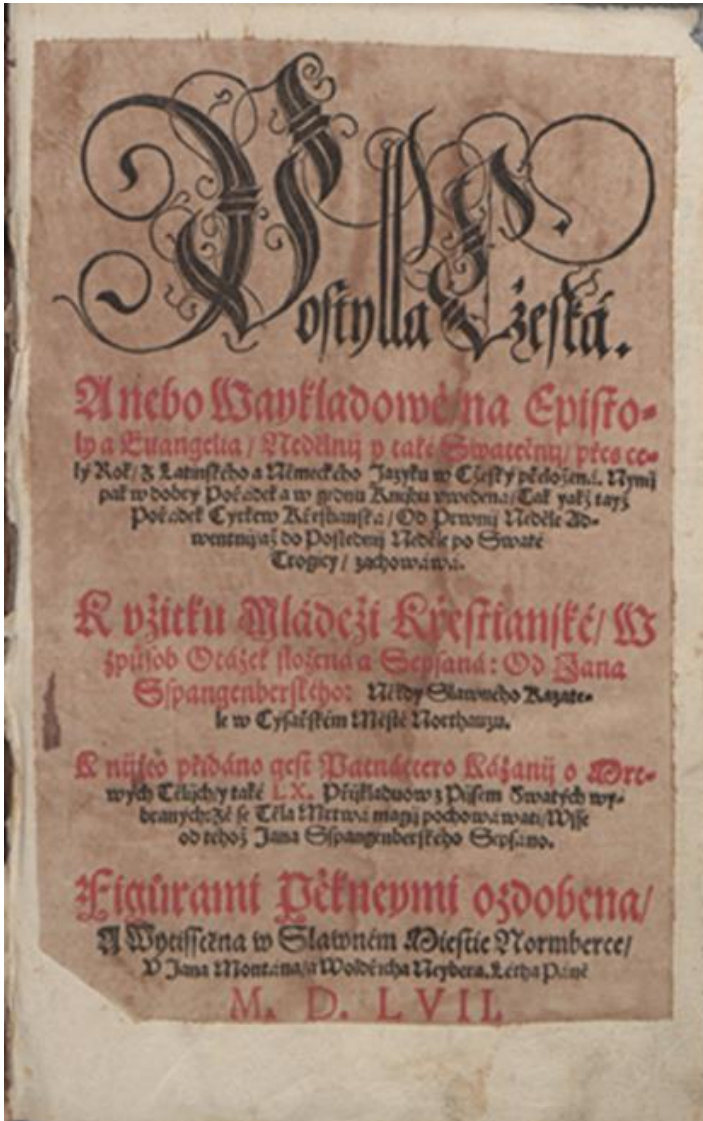 Postylla Cžeská.
Anebo Waykladowé na Episſto-
ly a Euangelia / Nedělnij y také Swátečnij / přes ce-
lý Rok / z Latinského a Německého Jazyku w Cžeský přeložení. Nynij
pak w dobrý Pořádek a w gednu Knijhu vwedena / Tak yakž tayž
Pořádek Cyrkew Křestianská / Od Prwnij Neděle Ad-
wentnij až do Poslednij Neděle po Swaté
Trogicy / zachowáwá.
K vžitku Mládeži Křestianské / W
způsob Otázek složená a Sepsaná: Od Jana
Sſpangenberského: Někdy Slawného Kazate-
le w Cysařském Městě Northauzu.
K nijžto přidáno gest Patnáctero Kázanij o Mrt-
wých Tělijch / y také LX. Přijkladuow z Pijsem Swatých wy-
braných: Že se Těla Mrtwá magij pochowáwati / Wsse
od tehož Jana Sſpangenberského Sepsáno.
Figůrami Pěkneymi ozdobena /
A Wytisstěna w Slawném Miestie Normberce /
V Jana Montána / a Woldřicha Neybera. Létha Páně
M. D. LVII.